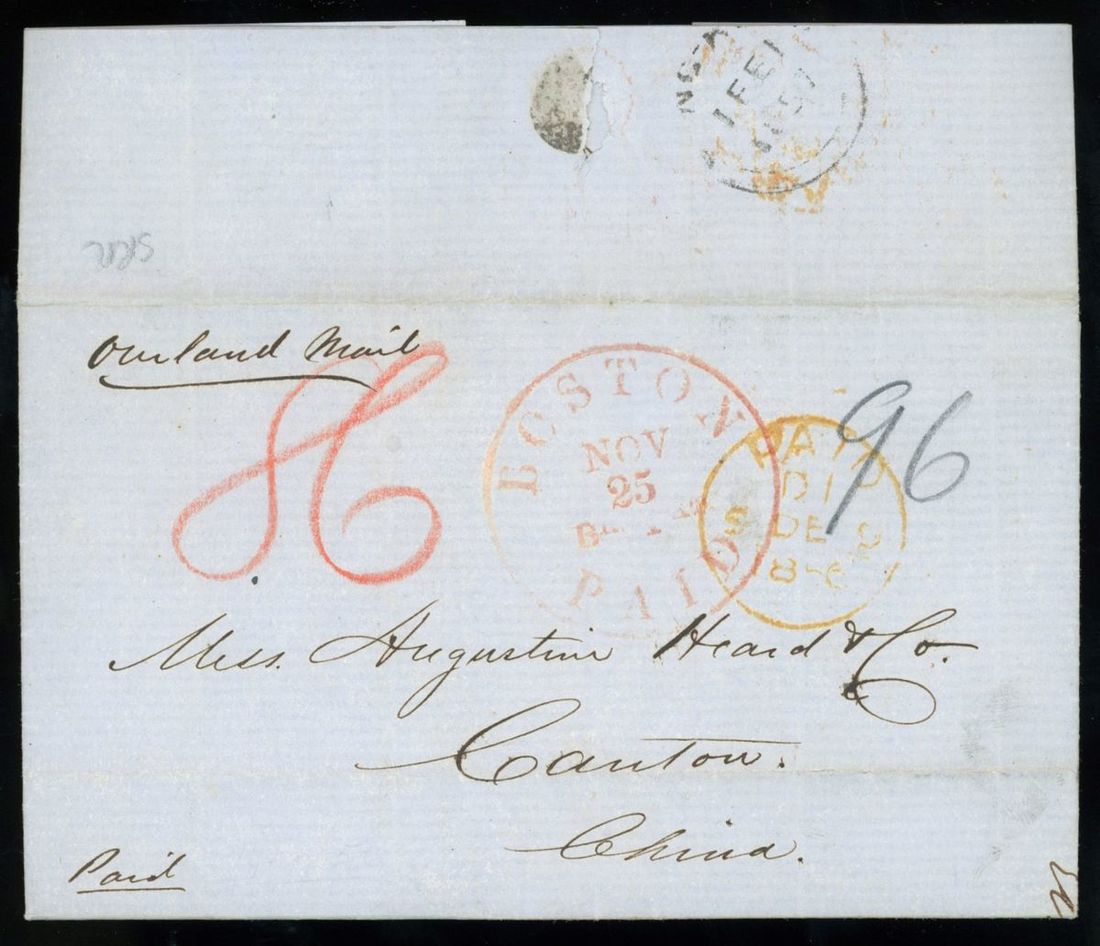 1857
Overland Mail
BOSTON
NOV
25
PAID
96
PAID
DE
Mess. Augustine Heard & Co.
Canton.
China.
Paid